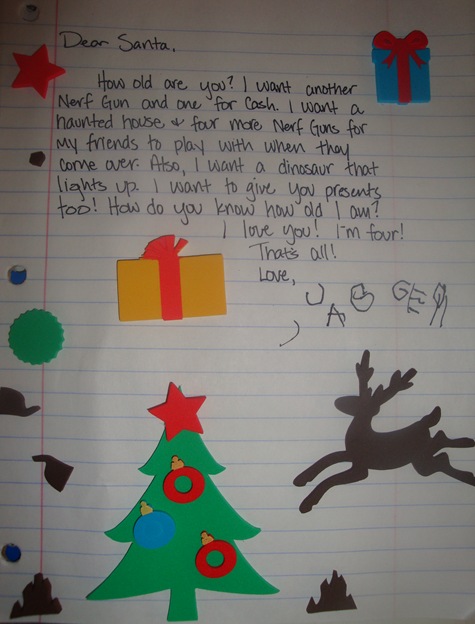 Dear Santa,
How old are you? I want another
Nerf Gun and one for Cash. I want a
haunted house & four more Nerf Guns for
my friends to play with when they
come over. Also, I want a dinosaur that
lights up. I want to give you presents
too! How do you know how old I am?
I love you! I'm four!
That's all!
Love,